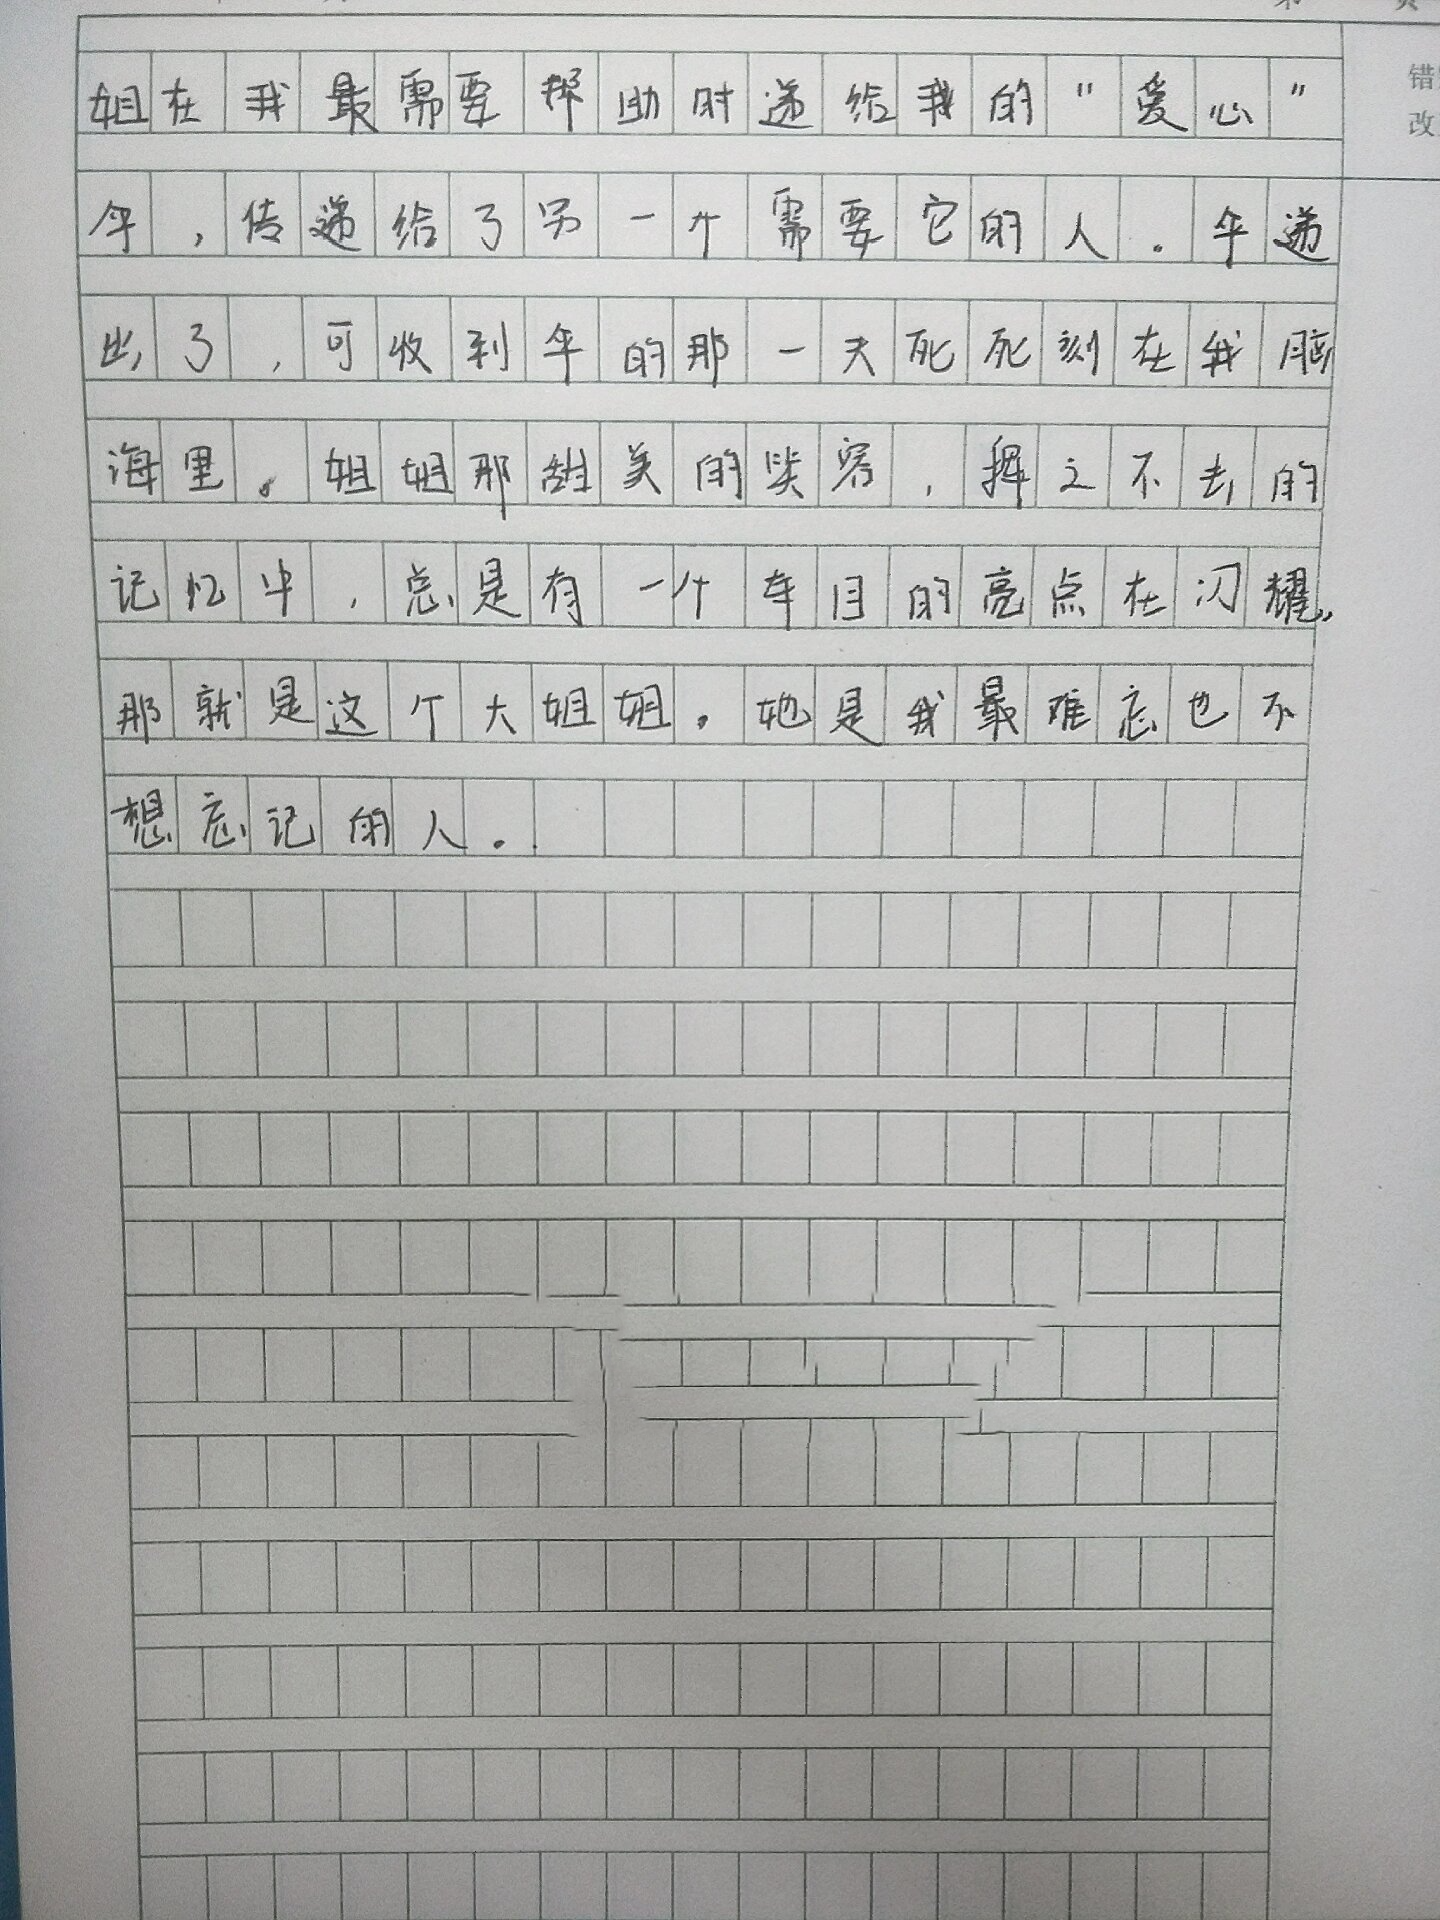 姐在我最需要帮助时递给我的“爱心”
伞,传递给了另一个需要它的人。伞递
出了,可收到伞的那一天死死刻在我脑
海里。姐姐那甜美的笑容,挥之不去的
记忆中,总是有一个夺目的亮点在闪耀,
那就是这个大姐姐。她是我最难忘也不
想忘记的人。
错
改